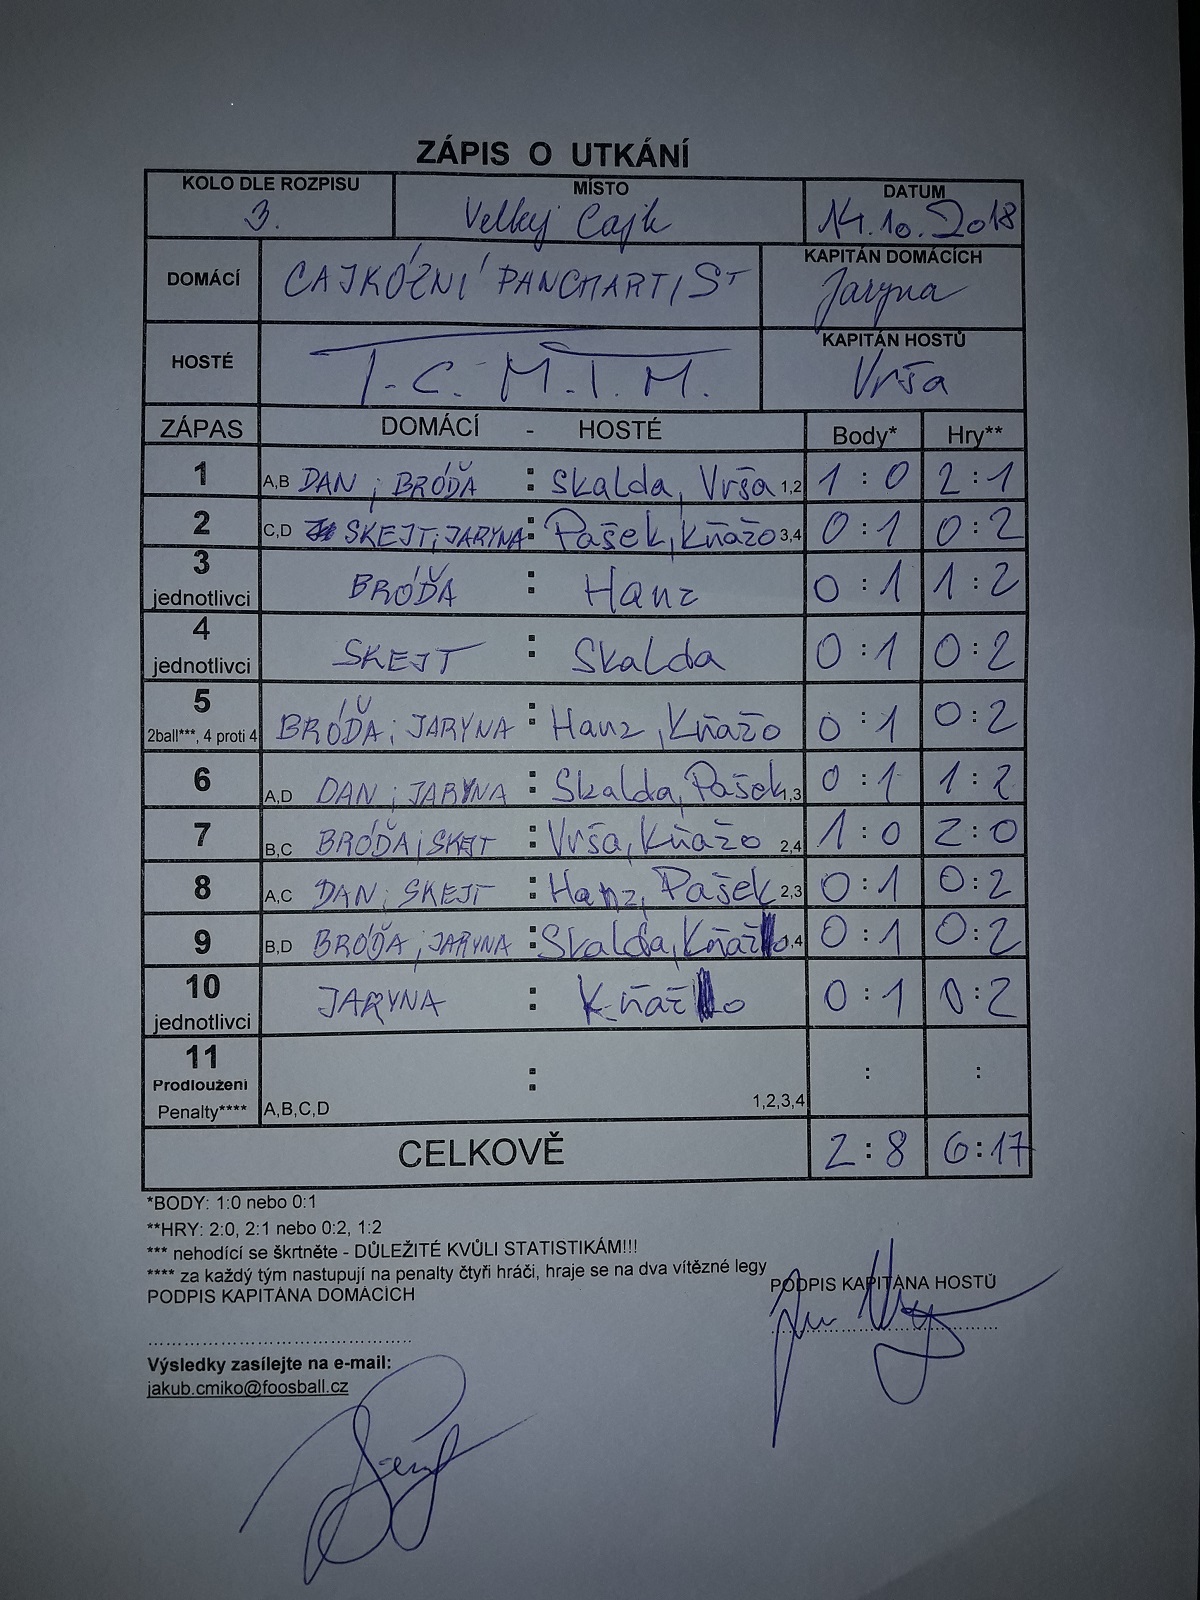 ZÁPIS O UTKÁNÍ
KOLO DLE ROZPISU MÍSTO DATUM
3. Velkej Cajk 14.10.2018
DOMÁCÍ CAJKÓZNÍ PANCHARTI ST KAPITÁN DOMÁCÍCH
Jaryna
HOSTÉ T.C.M.T.M. KAPITÁN HOSTŮ
Vrša
ZÁPAS DOMÁCÍ - HOSTÉ Body* Hry**
1 A,B DAN ; BRÓĎA : Skalda, Vrša 1,2 1 : 0 2 : 1
2 C,D SKEJT ; JARYNA : Pašek, Kňažo 3,4 0 : 1 0 : 2
3 jednotlivci BRÓĎA : Hanz 0 : 1 1 : 2
4 jednotlivci SKEJT : Skalda 0 : 1 0 : 2
5 2ball***, 4 proti 4 BRÓĎA ; JARYNA : Hanz, Kňažo 0 : 1 0 : 2
6 A,D DAN ; JARYNA : Skalda, Pašek 1,3 0 : 1 1 : 2
7 B,C BRÓĎA ; SKEJT : Vrša, Kňažo 2,4 1 : 0 2 : 0
8 A,C DAN ; SKEJT : Hanz, Pašek 2,3 0 : 1 0 : 2
9 B,D BRÓĎA ; JARYNA : Skalda, Kňažo ,4 0 : 1 0 : 2
10 jednotlivci JARYNA : Kňažo 0 : 1 0 : 2
11 Prodloužení : : :
Penalty**** A,B,C,D 1,2,3,4
CELKOVĚ 2 : 8 6 : 17
*BODY: 1:0 nebo 0:1
**HRY: 2:0, 2:1 nebo 0:2, 1:2
*** nehodící se škrtněte - DŮLEŽITÉ KVŮLI STATISTIKÁM!!!
**** za každý tým nastupují na penalty čtyři hráči, hraje se na dva vítězné legy
PODPIS KAPITÁNA DOMÁCÍCH PODPIS KAPITÁNA HOSTŮ
Výsledky zasílejte na e-mail:
jakub.cmiko@foosball.cz